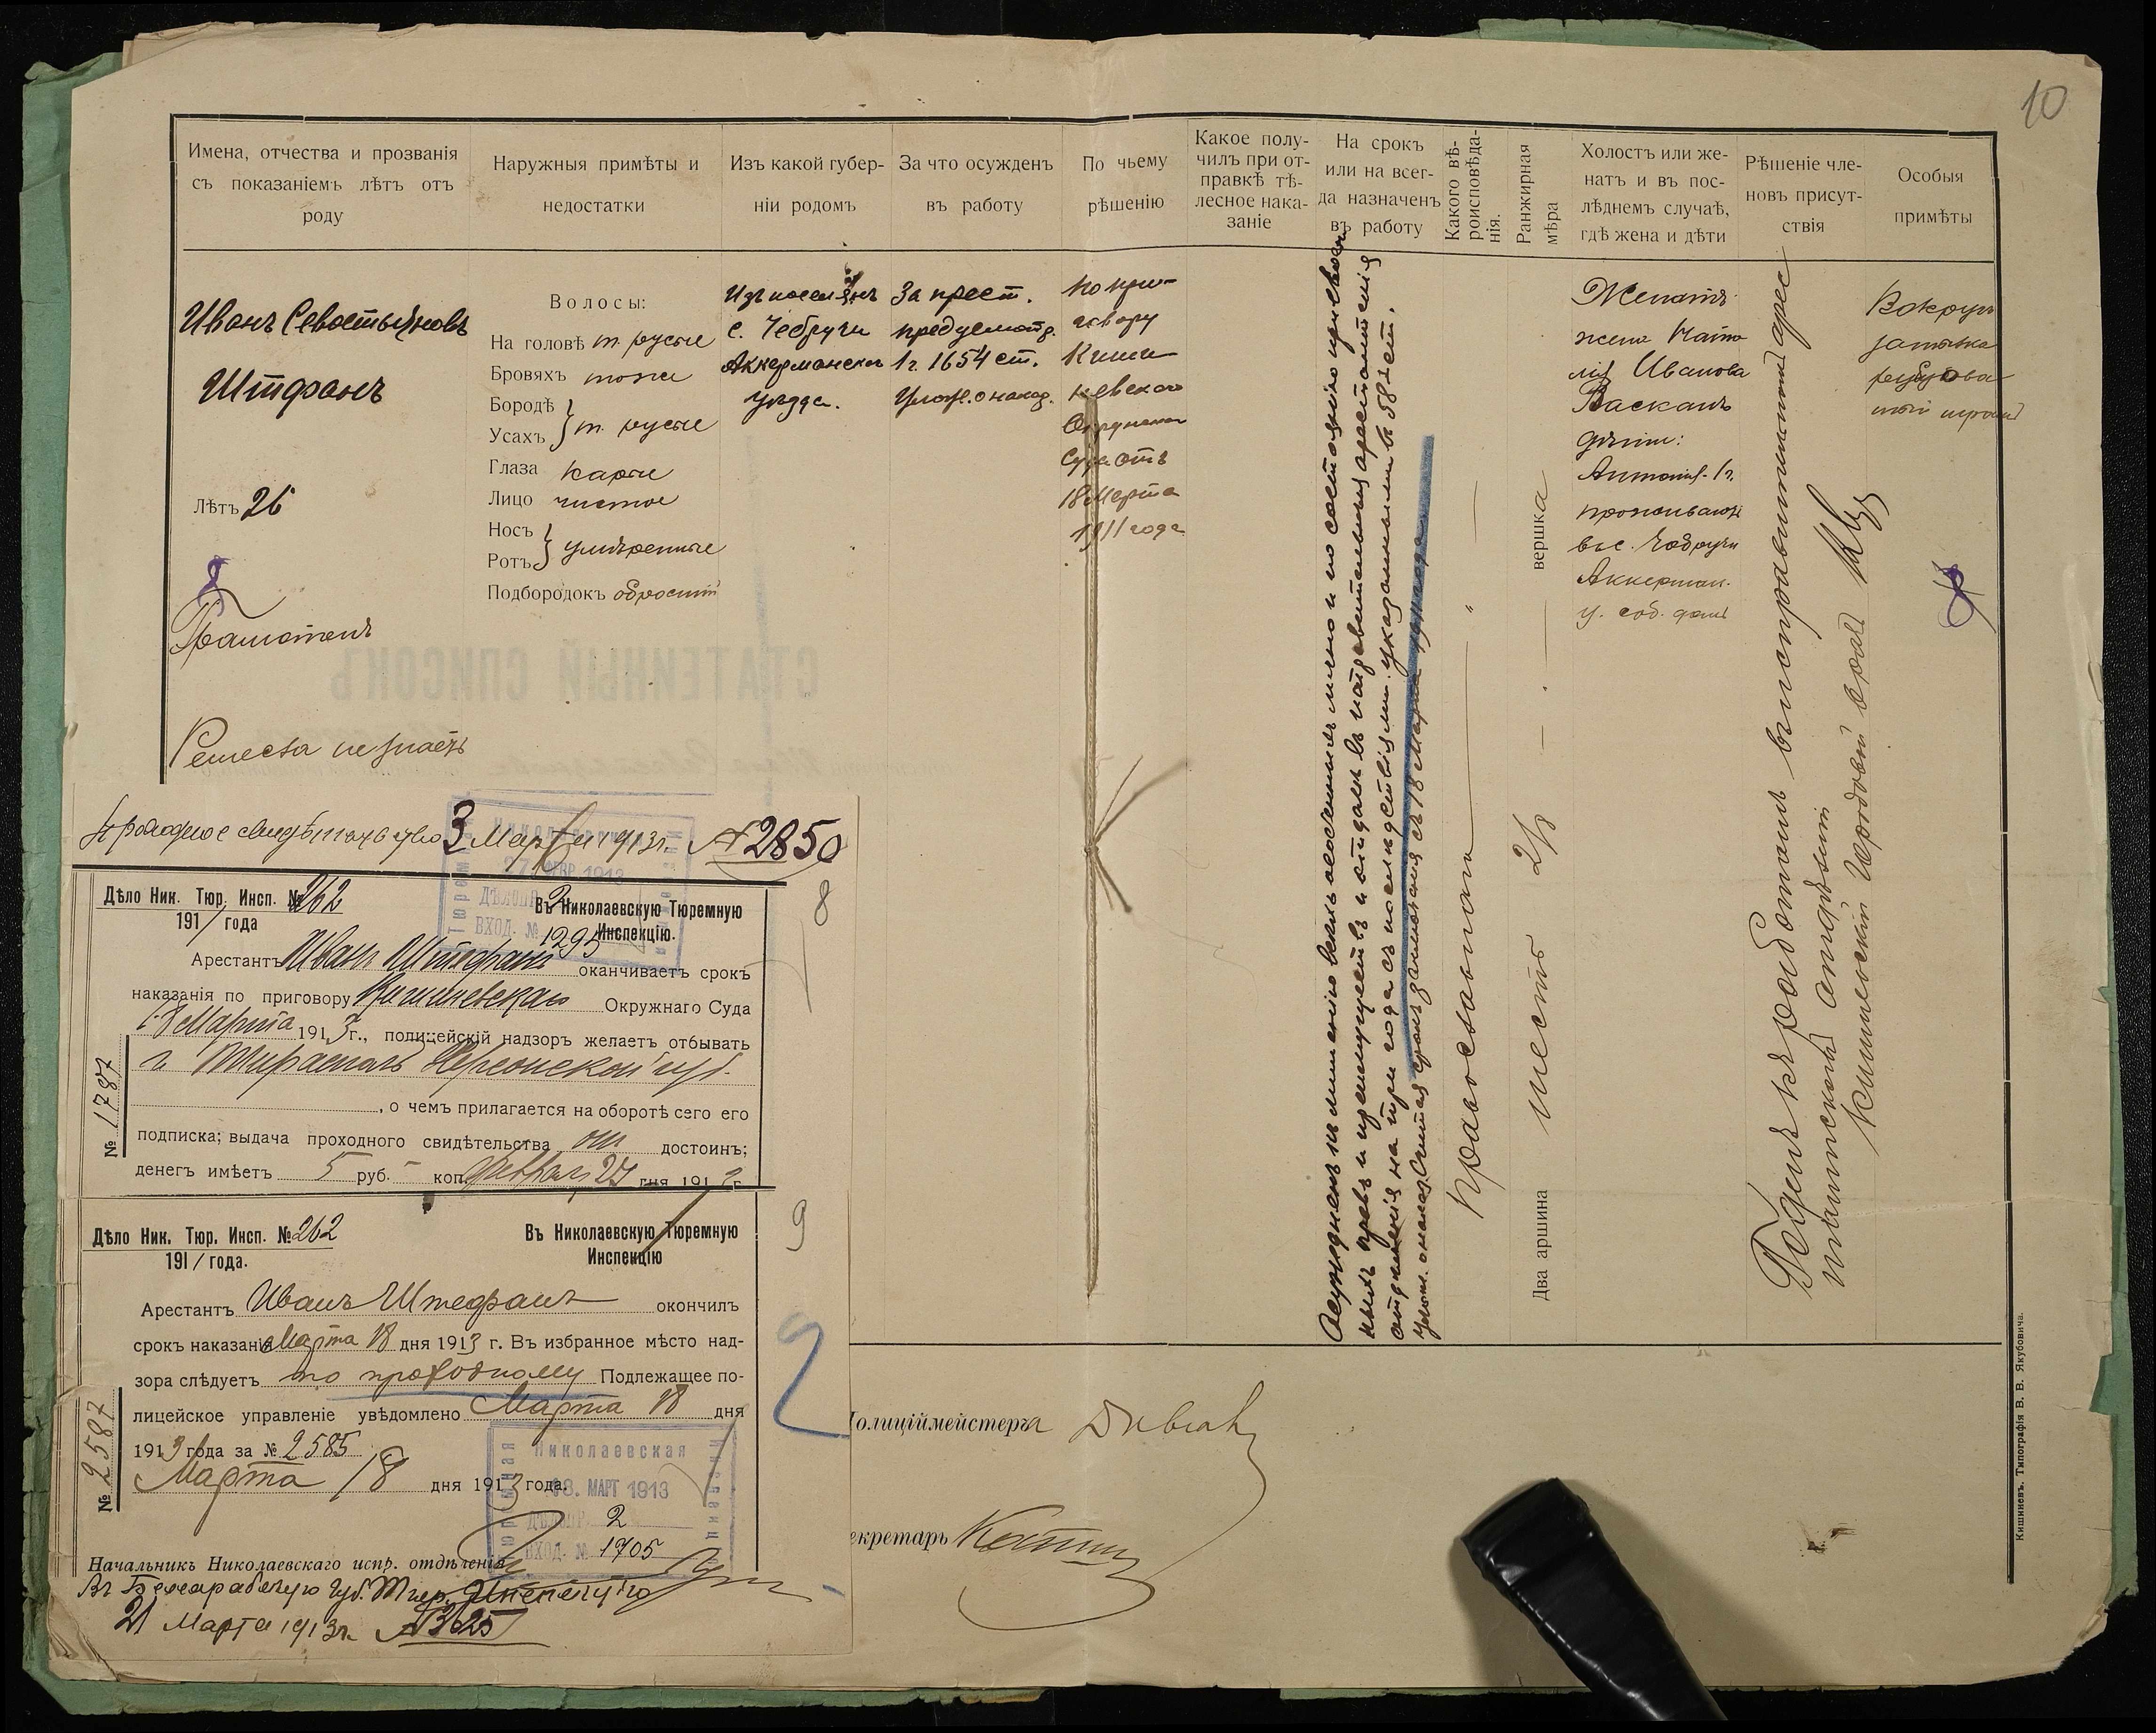 10
Имена, отчества и прозванія
съ показаніемъ лѣтъ отъ
роду
Наружныя примѣты и
недостатки
Изъ какой губер-
ніи родомъ
За что осужденъ
въ работу
По чьему
рѣшенію
Какое полу-
чилъ при от-
правкѣ тѣ-
лесное нака-
заніе
На срокъ
или на всег-
да назначенъ
въ работу
Какого вѣ-
роисповѣда-
нія.
Ранжирная
мѣра
Холостъ или же-
натъ и въ пос-
лѣднемъ случаѣ,
гдѣ жена и дѣти
Рѣшеніе чле-
новъ присут-
ствія
Особыя
примѣты
Иванъ Севостьяновъ
Штефанъ
Лѣтъ 26
Грамотенъ
Ремесла не знаетъ
Волосы:
На головѣ т. русые
Бровяхъ тоже
Бородѣ
Усахъ т. русые
Глаза карие
Лицо чистое
Носъ
Ротъ умѣренные
Подбородокъ обросший
Изъ поселянъ
с. Чебручи
Аккерманскаго
уѣзда.
За прест.
предусмотр.
1 ч. 1654 ст.
Улож. о наказ.
По при-
говору
Киши-
невскаго
Окружнаго
Суда отъ
18 Марта
1911 года
Осужденъ къ лишенію всѣхъ особенныхъ лично и по состоянію присвоен-
ныхъ правъ и преимуществъ и отдачѣ въ исправительныя арестантскія
отдѣленія на три года съ послѣдствіями, указанными въ 58 ст.
Улож. о наказ. Считая срокъ съ 18 Марта 1911 года
Православнаго
Два аршина шесть 2/8 вершка
Женатъ
жена Ната-
лія Иванова
Васканъ
дѣти:
Антонъ - 1 г.
проживаютъ
въ с. Чобручи
Аккерман.
у. соб. домъ
Годенъ къ работамъ въ исправительномъ арес-
тантскомъ отдѣленіи
Кишиневскій Городовой врачъ
Вокругъ
затылка
шрамъ
СТАТЕЙНЫЙ СПИСОКЪ
Проходное свидѣтельство 3 Марта 1913 г. № 2850
Дѣло Ник. Тюр. Инсп. № 262
1911 года
Въ Николаевскую Тюремную
Инспекцію.
27 ФЕВР 1913
ДѢЛОПР. 2
ВХОД. № 1295
8
Арестантъ Иванъ Штефанъ оканчиваетъ срокъ
наказанія по приговору Кишиневскаго Окружнаго Суда
18 Марта 1913 г., полицейскій надзоръ желаетъ отбывать
г. Тирасполь Херсонской губ.
, о чемъ прилагается на оборотѣ сего его
подписка; выдача проходного свидѣтельства онъ достоинъ;
денегъ имѣетъ 5 руб. - коп. Февраля 27 дня 1913 г.
№ 1787
Дѣло Ник. Тюр. Инсп. № 262
1911 года.
Въ Николаевскую Тюремную
Инспекцію
9
Арестантъ Иванъ Штефанъ окончилъ
срокъ наказанія Марта 18 дня 1913 г. Въ избранное мѣсто над-
зора слѣдуетъ по проходному Подлежащее по-
лицейское управленіе увѣдомлено Марта 18 дня
1913 года за № 2585
Марта 18 дня 1913 года.
№ 2587
Николаевская
18. МАРТ 1913
ДѢЛОПР. 2
ВХОД. № 1705
Начальникъ Николаевскаго испр. отдѣленія
Въ Бессарабскую Губ. Тюр. Инспекцію
21 Марта 1913 г. № 3625
Полиціймейстера
Секретарь
Кишиневъ. Типографія В. В. Якубовича.